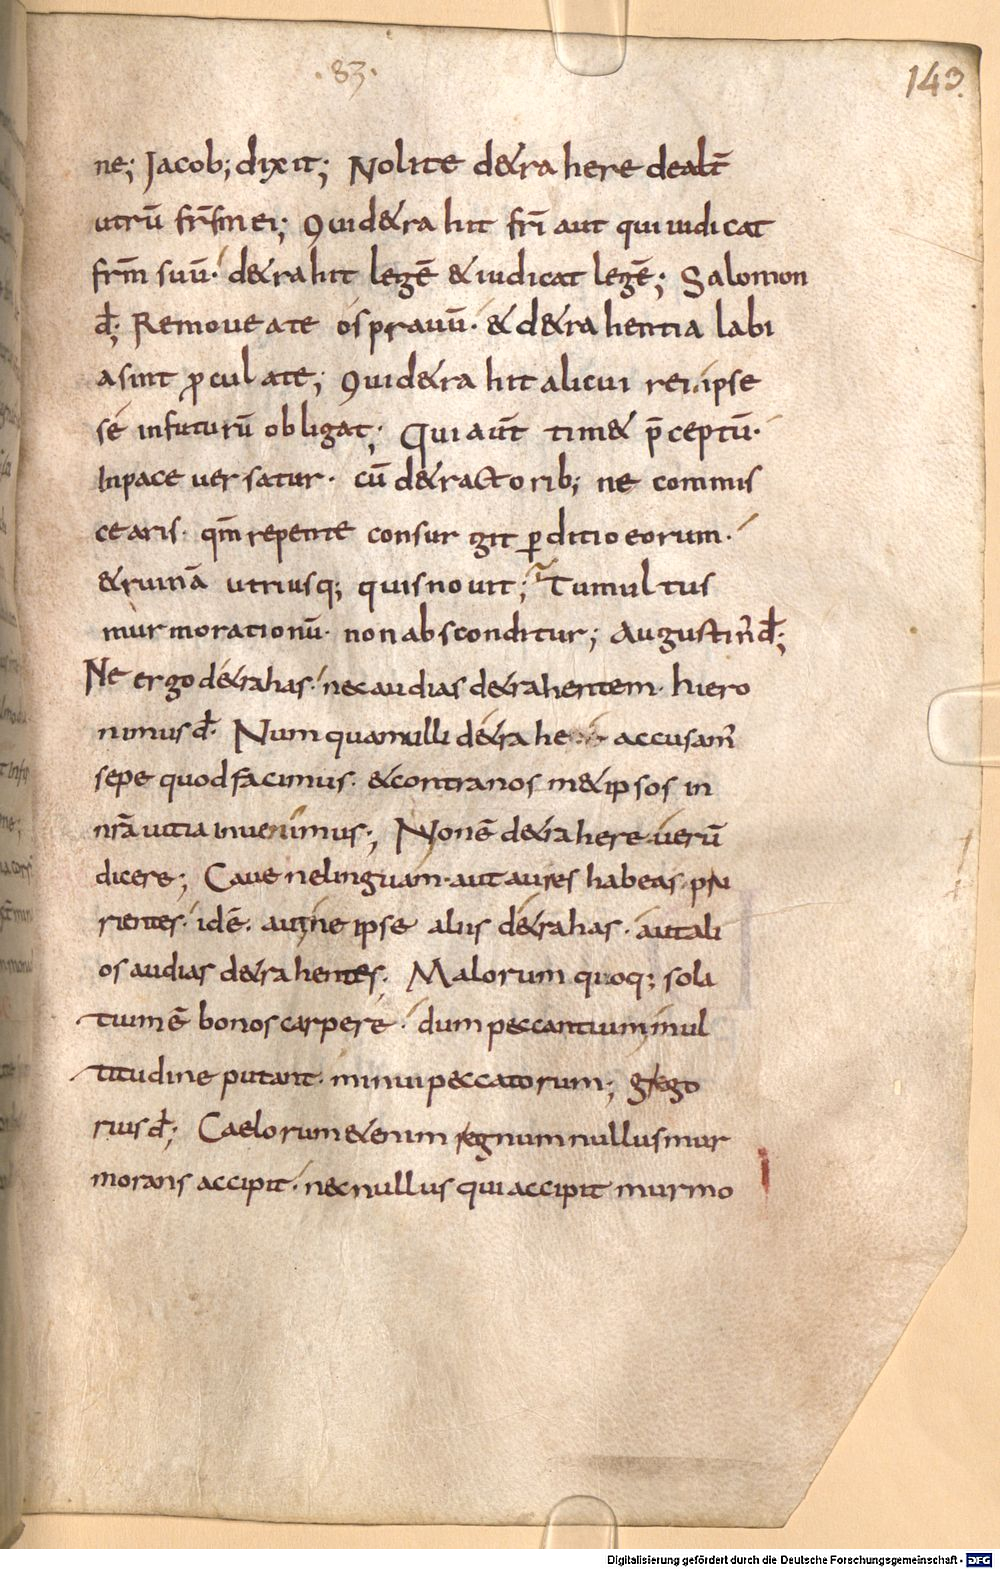 ·83·
143.
ne; Jacob; dixit; Nolite detrahere dealt̄
utrū fr̄sm ei; Qui detrahit fr̄i aut qui iudicat
fr̄m suū· detrahit legē & iudicat legē; Salomon
đ; Remoue a te os prauū· & detrahentia labi
a sint ꝓcul a te; Qui detrahit alicui rei ipse
sé in futurū obligat; Qui aūt tim& p̄ceptū·
In pace uersatur· cū detractorib; ne commis
cearis· qm̄ repente consurgit ꝑditio eorum·
& ruinā utriusq; quis nouit; Tumultus
murmorationū· non abscondetur; Augustin̄ đ;
Ne ergo detrahas· nec audias detrahentem· hiero
nimus đ· Numquam illi detrahe accusam̄
sepe quod facimus· & contra nos met ipsos in
nr̄a uitia inuenimus; Non ē detrahere uerū
dicere; Caue ne linguam· aut aures habeas pru
rientes· idē· aut ne ipse aliis detrahas· aut ali
os audias detrahentes· Malorum quoq; sola
tium ē bonos carpere· dum peccantium mul
titudine putant· minui peccatorum; grego
rius đ; Caelorum etenim regnum nullus mur
morans accipit· nec nullus qui accipit murmo
Digitalisierung gefördert durch die Deutsche Forschungsgemeinschaft - DFG